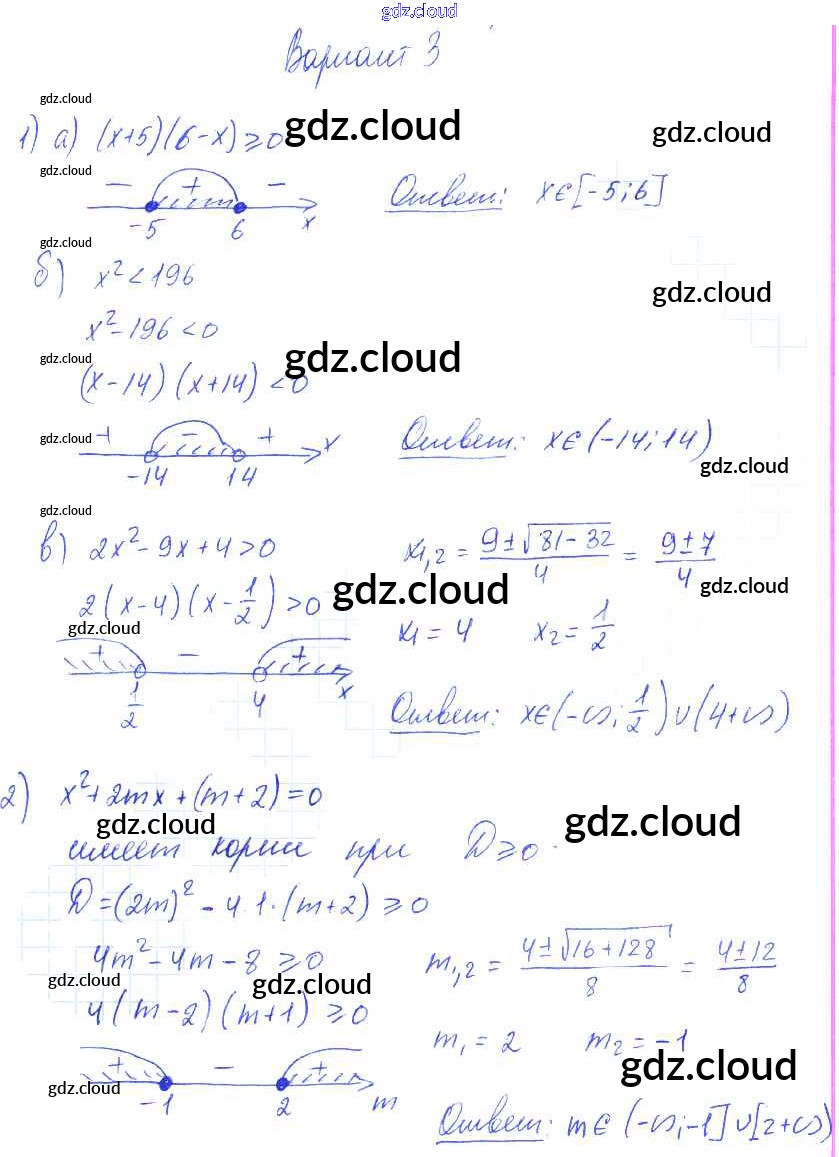 gdz.cloud
Вариант 3
gdz.cloud
1) а) (x+5)(6-x)≥0 gdz.cloud gdz.cloud
gdz.cloud
− + − Ответ: x∈[-5;6]
-5 6 x
gdz.cloud
б) x²<196 gdz.cloud
x²-196<0
gdz.cloud gdz.cloud
(x-14)(x+14)<0
gdz.cloud + − + x Ответ: x∈(-14;14)
-14 14 gdz.cloud
gdz.cloud
в) 2x²-9x+4>0 x₁,₂ = (9±√(81-32))/4 = (9±7)/4
2(x-4)(x-1/2)>0 gdz.cloud gdz.cloud
gdz.cloud x₁=4 x₂=1/2
+ − +
1/2 4 x Ответ: x∈(-∞;1/2)∪(4+∞)
2) x²+2mx+(m+2)=0
gdz.cloud gdz.cloud
имеет корни при D≥0.
D=(2m)²-4.1.(m+2)≥0
4m²-4m-8≥0 m₁,₂ = (4±√(16+128))/8 = (4±12)/8
gdz.cloud gdz.cloud gdz.cloud
4(m-2)(m+1)≥0
m₁=2 m₂=-1
+ − + gdz.cloud
gdz.cloud
-1 2 m
Ответ: m∈(-∞;-1]∪[2+∞)